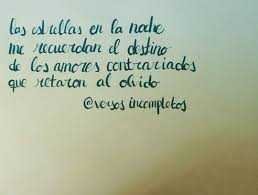 Las estrellas en la noche
me recuerdan el destino
de los amores contrariados
que retaron al olvido
@versos incompletos